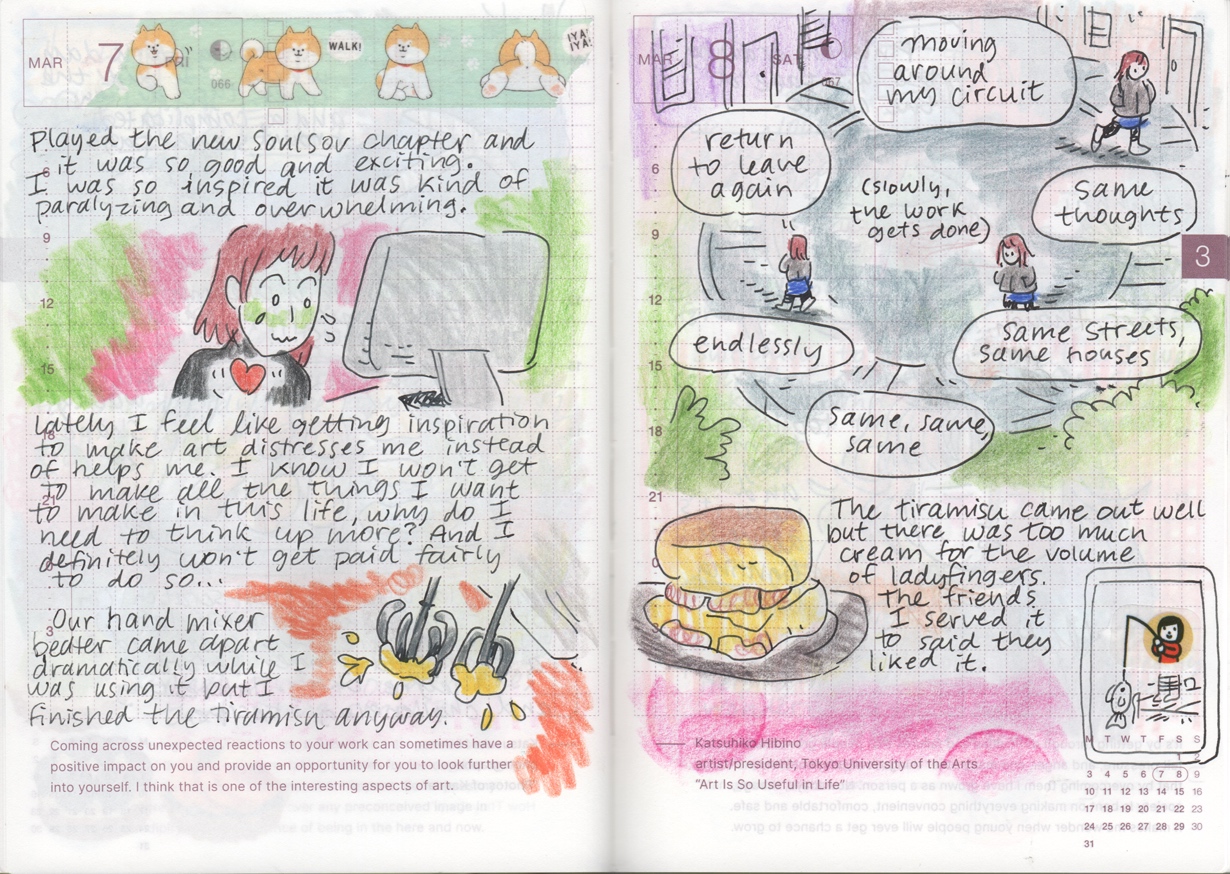 MAR 7 FRI
066
WALK!
IYA! IYA!
Played the new Soulsov chapter and
it was so good and exciting.
I was so inspired it was kind of
paralyzing and overwhelming.
6
9
12
15
Lately I feel like getting inspiration
to make art distresses me instead
of helps me. I know I won't get
to make all the things I want
to make in this life, why do I
need to think up more? And I
definitely won't get paid fairly
to do so...
18
21
Our hand mixer
beater came apart
dramatically while I
was using it but I
finished the tiramisu anyway.
3
Coming across unexpected reactions to your work can sometimes have a
positive impact on you and provide an opportunity for you to look further
into yourself. I think that is one of the interesting aspects of art.
MAR 8 SAT
067
moving
around
my circuit
return
to leave
again
(slowly,
the work
gets done)
same
thoughts
endlessly
same streets,
same houses
same, same,
same
3
6
9
12
15
18
21
0
The tiramisu came out well
but there was too much
cream for the volume
of ladyfingers.
The friends
I served it
to said they
liked it.
Katsuhiko Hibino
artist/president, Tokyo University of the Arts
"Art Is So Useful in Life"
M T W T F S S
1
3 4 5 6 7 8 9
10 11 12 13 14 15 16
17 18 19 20 21 22 23
24 25 26 27 28 29 30
31